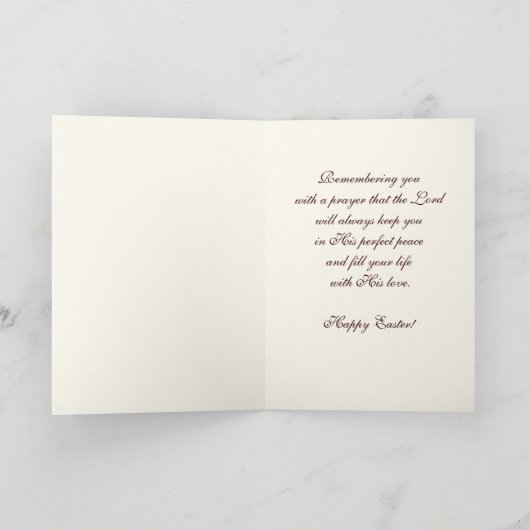 Remembering you
with a prayer that the Lord
will always keep you
in His perfect peace
and fill your life
with His love.
Happy Easter!